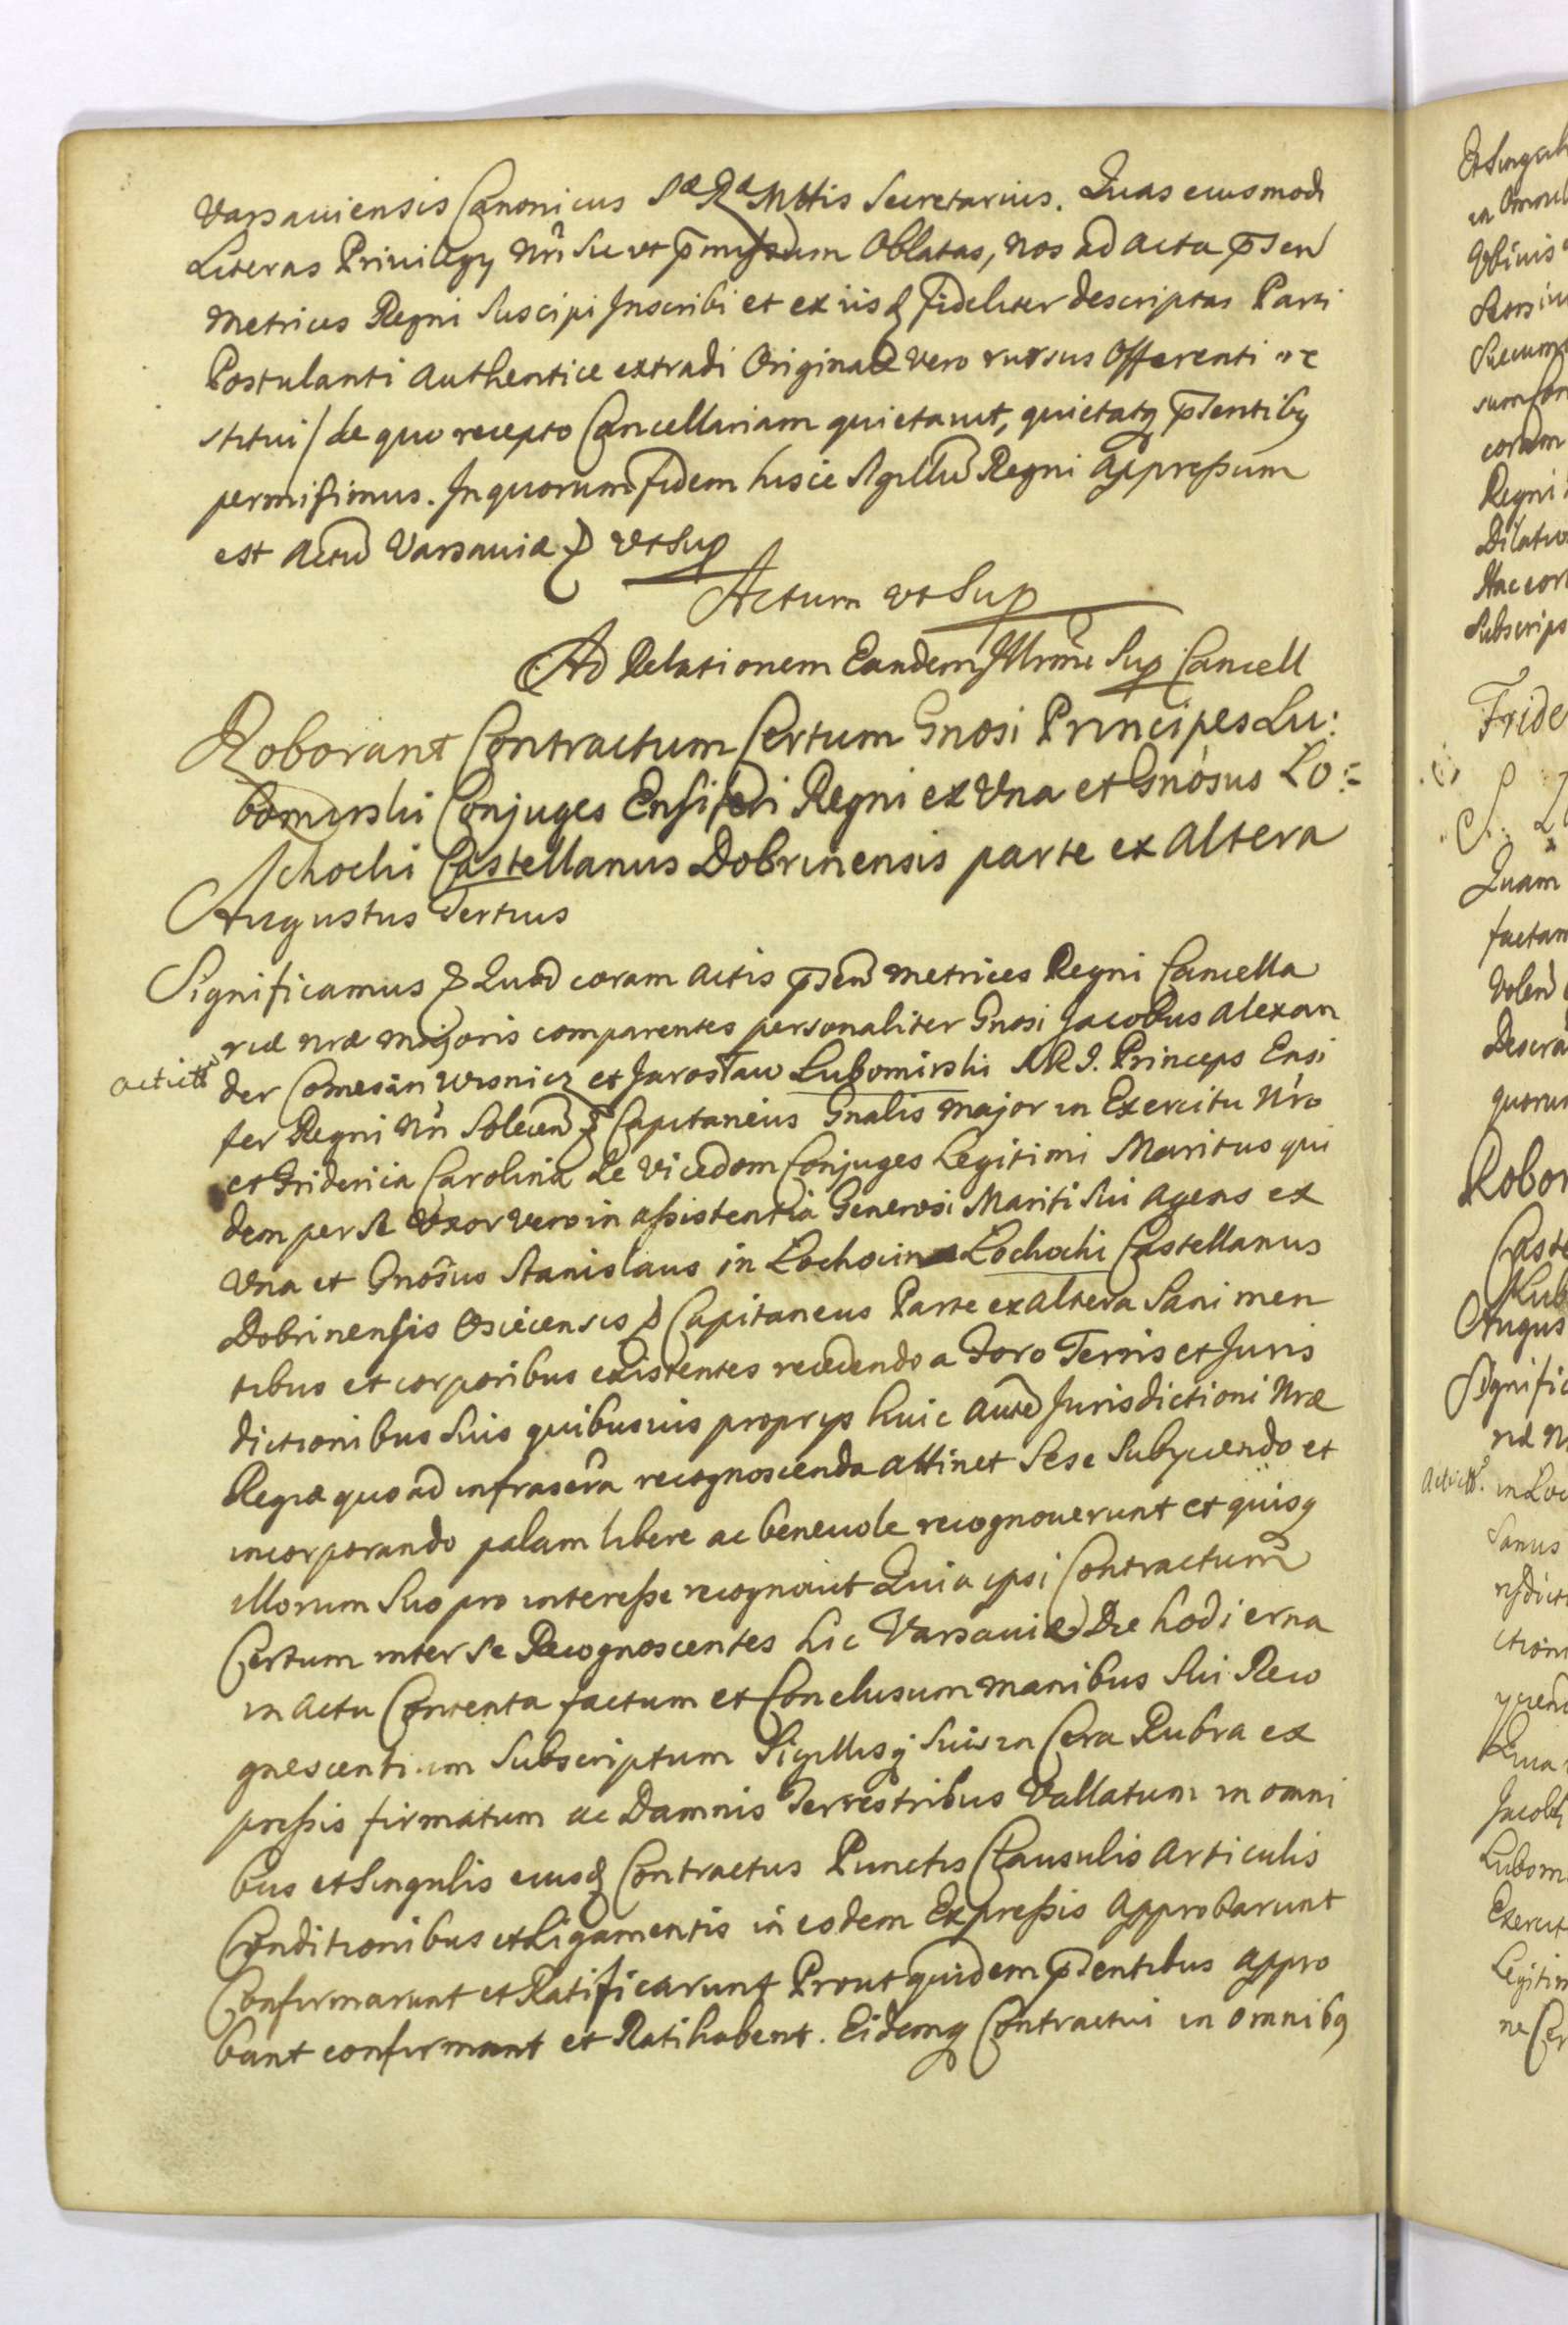 Varsauiensis Canonicus Sæ Ræ Mttis Secretarius. Quas eiusmodi
Literas Priuilegy Nri sic ut p̄missum Oblatas, nos ad acta p̄sen
Metrices Regni Suscipi Inscribi et ex iisd fideliter descriptas Parti
Postulanti authentice extradi Originale vero rursus Offerenti re
stitui / de quo recepto Cancellariam quietauit, quietatq p̄sentibq
permisimus. In quorum fidem hisce Sigillu Regni appressum
est Actu Varsauiæ ut Sup
Actum ut Sup
Ad Relationem Eandem Illrme Sup Cancell
Roborant Contractum Certum Gnosi Principes Lu:
bomirski Conjuges Ensiferi Regni ex Una et Gnosus Lo:
chocki Castellanus Dobrinensis parte ex Altera
Augustus Tertius
Significamus Quod coram actis p̄sen Metrices Regni Cancella
riæ nræ majoris comparentes personaliter Gnosi Jacobus Alexan
der Comes in Wisnicz et Jarosław Lubomirski S.R.I. Princeps Ensi
fer Regni Nri Solecen Capitaneus Gnalis Major in Exercitu Nro
et Friderica Carolina de Vicedom Conjuges Legitimi Maritus qui
dem per se Uxor vero in assistentia Generosi Mariti sui agens ex
Una et Gnosus Stanislaus in Lochocin Lochocki Castellanus
Dobrinensis Osiecensis Capitaneus Parte ex altera Sani men
tibus et corporibus existentes recedendo a Foro Terris et Juris
dictionibus suis quibusuis proprys huic aute Jurisdictioni Nræ
Regiæ quo ad infrascra recognoscenda attinet sese Subyciendo et
incorporando palam libere ac beneuole recognouerunt et quisq
illorum Suo pro interesse recognouit Quia ipsi Contractum
Certum inter se Recognoscentes hic Varsauiæ Die hodierna
in actu Contenta factum et Conclusum manibus Sui Reco
gnescentium Subscriptum Sigillisq suis in Cera Rubra ex
pressis firmatum ac Damnis Terrestribus Vallatum in omni
bus et Singulis eiusd Contractus Punctis Clausulis Articulis
Conditionibus et Ligamentis in eodem Expressis approbarunt
Confirmarunt et Ratificarunt Prout quidem p̄sentibus appro
bant confirmant et Ratihabent. Eidemq Contractui in omnibq
actictt
Et Singul
coram
Regni
Subscrips
Fride
Quam
factam
Volen
quorum
Robor
Caste
Augus
Signific
actictt. in Loc
Sanus
Quia
Jacob
Lubom
Exercit
Legitim
ne Cer